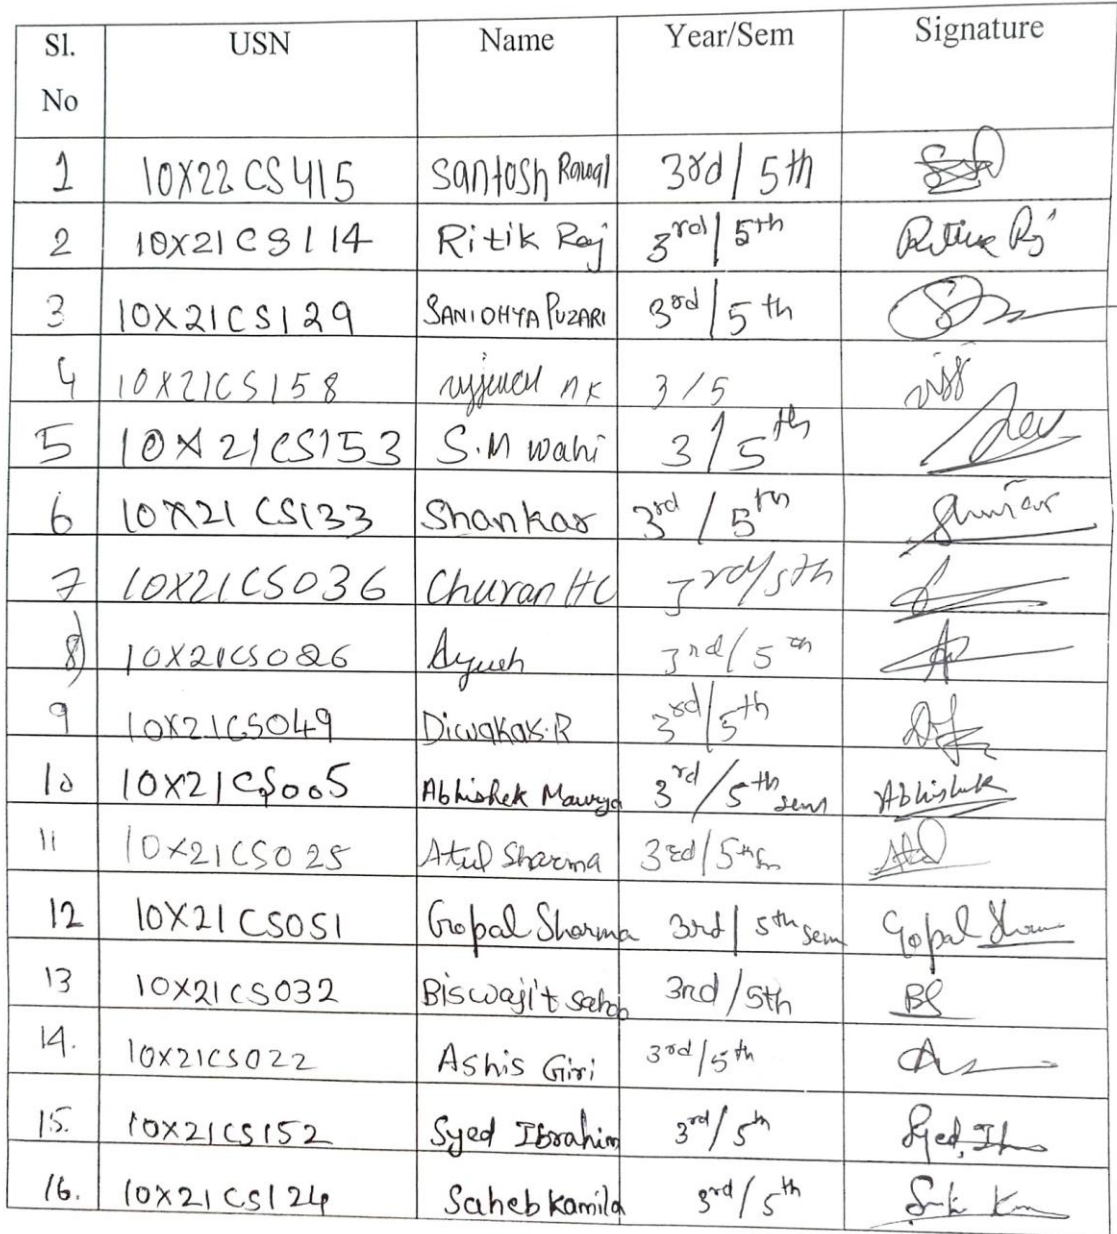 Sl. No USN Name Year/Sem Signature
1 10X22CS415 Santosh Rawal 3rd/5th
2 10X21CS114 Ritik Raj 3rd/5th Ritik Rj
3 10X21CS129 SANIDHYA PUZARI 3rd/5th
4 10X21CS158 ujjwal n k 3/5
5 10X21CS153 S.M wahi 3/5th
6 10X21CS133 Shankar 3rd/5th
7 10X21CS036 Churan HC 3rd/5th
8) 10X21CS026 Ayush 3rd/5th
9 10X21CS049 Diwakar.R 3rd/5th
10 10X21CS005 Abhishek Maurya 3rd/5th sem Abhishek
11 10X21CS025 Atul Sharma 3rd/5th Sm Atul
12 10X21CS051 Gopal Sharma 3rd/5th sem Gopal
13 10X21CS032 Biswajit Sahoo 3rd/5th BS
14. 10X21CS022 Ashis Giri 3rd/5th
15. 10X21CS152 Syed Ibrahim 3rd/5th Syed. Ib
16. 10X21CS124 Saheb Kamila 3rd/5th